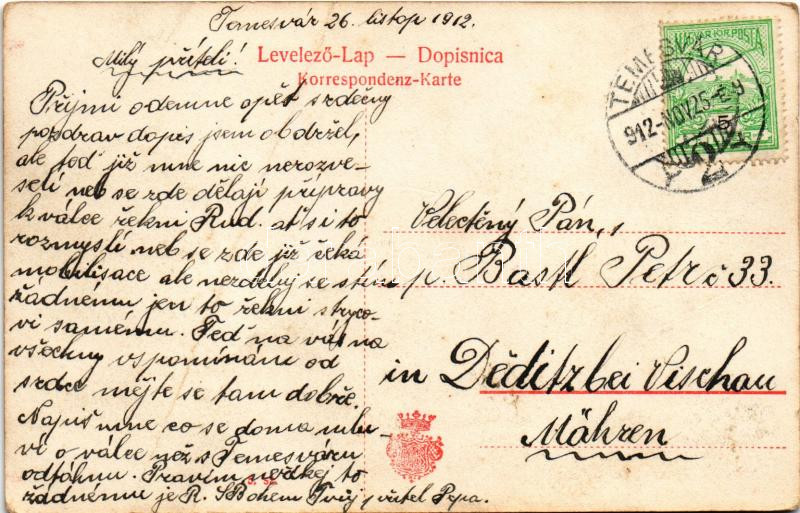 Temesvár 26. listop 1912.
Milý příteli!
Levelező-Lap — Dopisnica
Korrespondenz-Karte
MAGYAR KIR. POSTA
TEMESVÁR
912-NOV.25-E 9
5
Přijmi odemne opět srdečny
pozdrav dopis jsem obdržel,
ale teď již mne nic nerozve-
selí neb se zde dělají přípravy
k válce řekni Rud. ať si to
rozmyslí neb se zde již čeká
mobilisace ale nezděluj se stím
žádnému jen to řekni stryco-
vi samému. Teď na vás na
všechny vspomínám od
srdce mějte se tam dobře.
Napiš mne co se doma mlu-
ví o válce než s Temesváru
odtáhnu. Pravím neříkej to
žádnému je R. SBohem Tvůj přítel Pepa.
Velectěný Pán,
p. Bastl Petr č 33.
in Děditz bei Vischau
Mähren